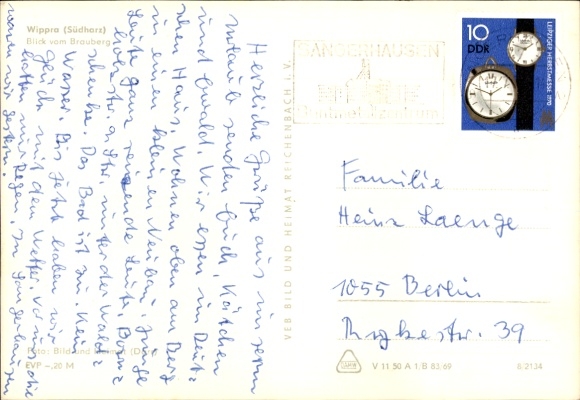 Wippra (Südharz)
Blick vom Brauberg
Herzliche Grüße aus unserm
Urlaub senden Euch, Kätchen
und Ewald. Wir essen im Deut-
schen Haus. Wohnen oben am Berg
in einem kleinen Neubau. Junge
Leute ganz reizende Leute.
unter der Wald-
schenke. Das Bad ist zu. Kein
Wasser. Bis jetzt haben wir
Glück mit dem Wetter.
hatten wir Regen. In Sangerhausen
waren wir gestern.
Foto: Bild und Heimat
EVP -,20 M
VEB BILD UND HEIMAT REICHENBACH I. V.
SANGERHAUSEN
10
DDR
LEIPZIGER HERBSTMESSE 1970
Familie
Heinz Laenge
1055 Berlin
Rykestr. 39
V 11 50 A 1 B 83/69
6/2134